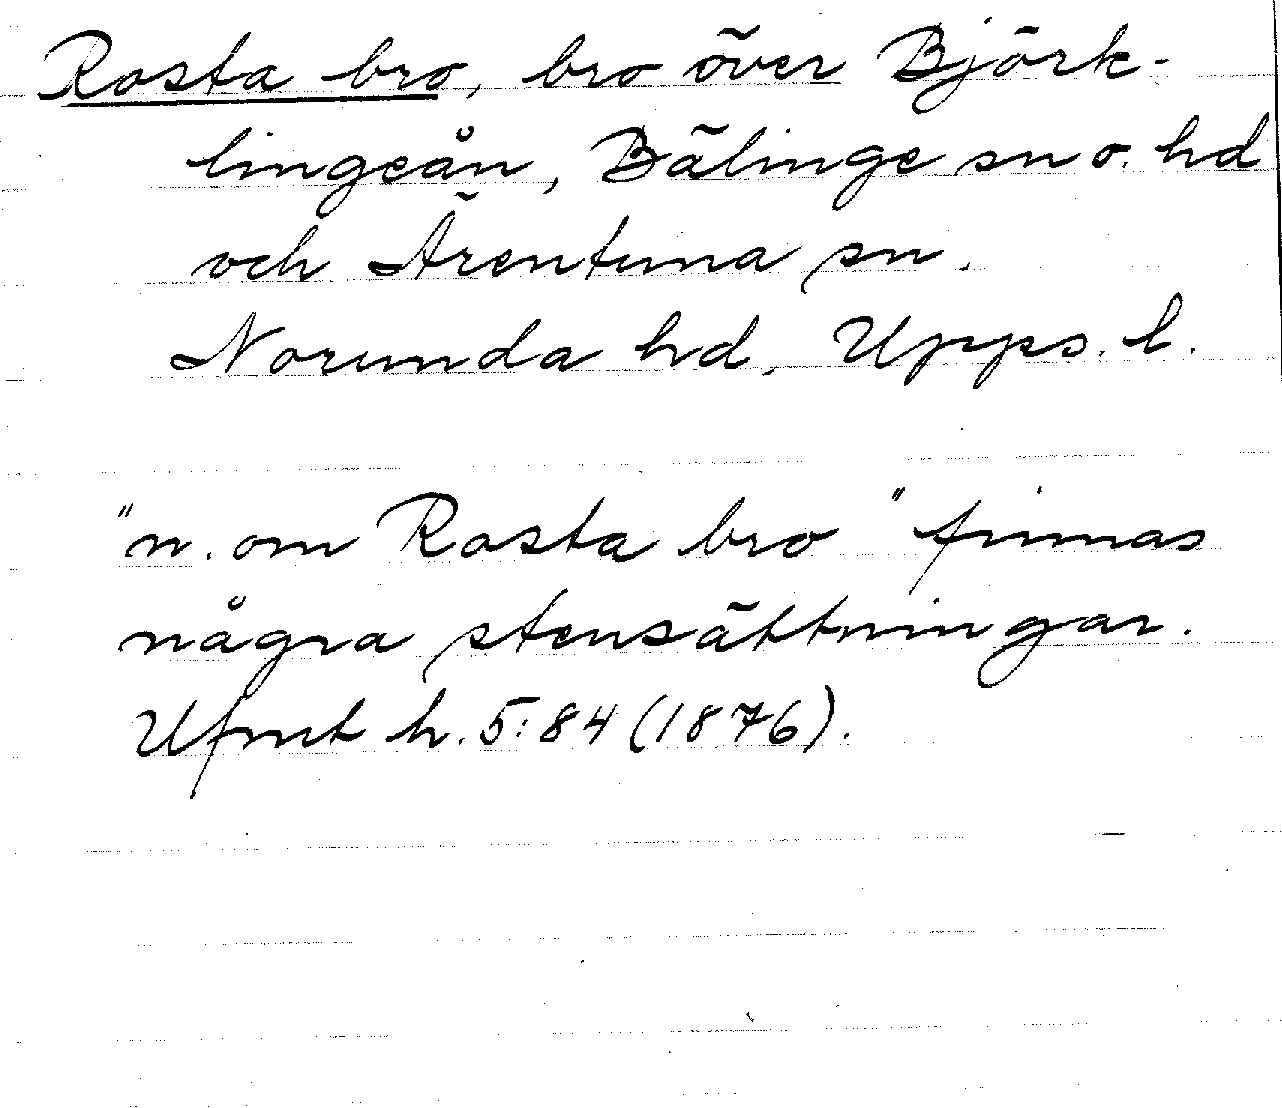 Rosta bro, bro över Björk-
lingeån, Bälinge sn o. hd
och Ärentuna sn.
Norunda hd, Upps. l.
"n. om Rosta bro" finnas
några stensättningar.
Ufmt h. 5:84 (1876).